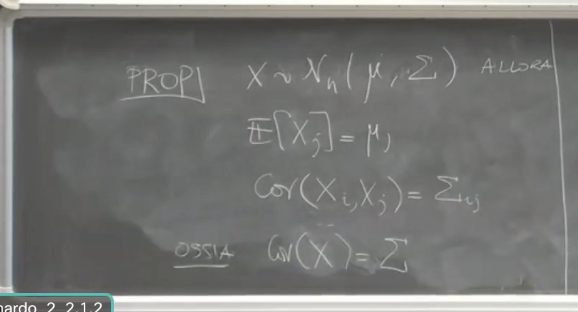 PROP X ~ N_n(μ, Σ) ALLORA
E[X_j] = μ_j
Cov(X_i, X_j) = Σ_ij
OSSIA Cov(X) = Σ
nardo 2 2.1.2